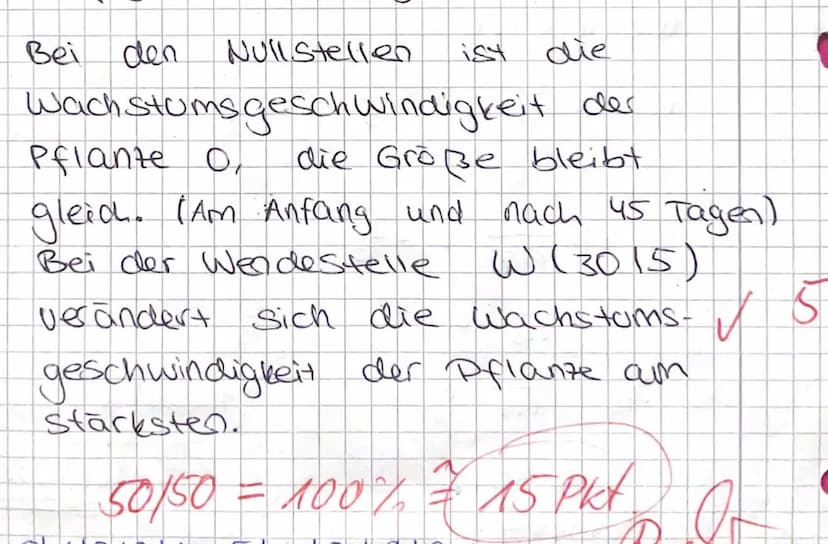 Bei den Nullstellen ist die
Wachstumsgeschwindigkeit der
Pflanze 0, die Größe bleibt
gleich. (Am Anfang und nach 45 Tagen)
Bei der Wendestelle W(30|5)
verändert sich die Wachstums-
geschwindigkeit der Pflanze am
stärksten.
✓ 5
50/50 = 100% ≙ 15 Pkt